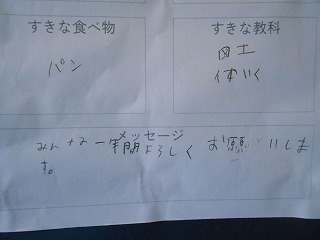 すきな食べ物
パン
すきな教科
図工
体いく
メッセージ
みんな一年間よろしくお願いしま
す。